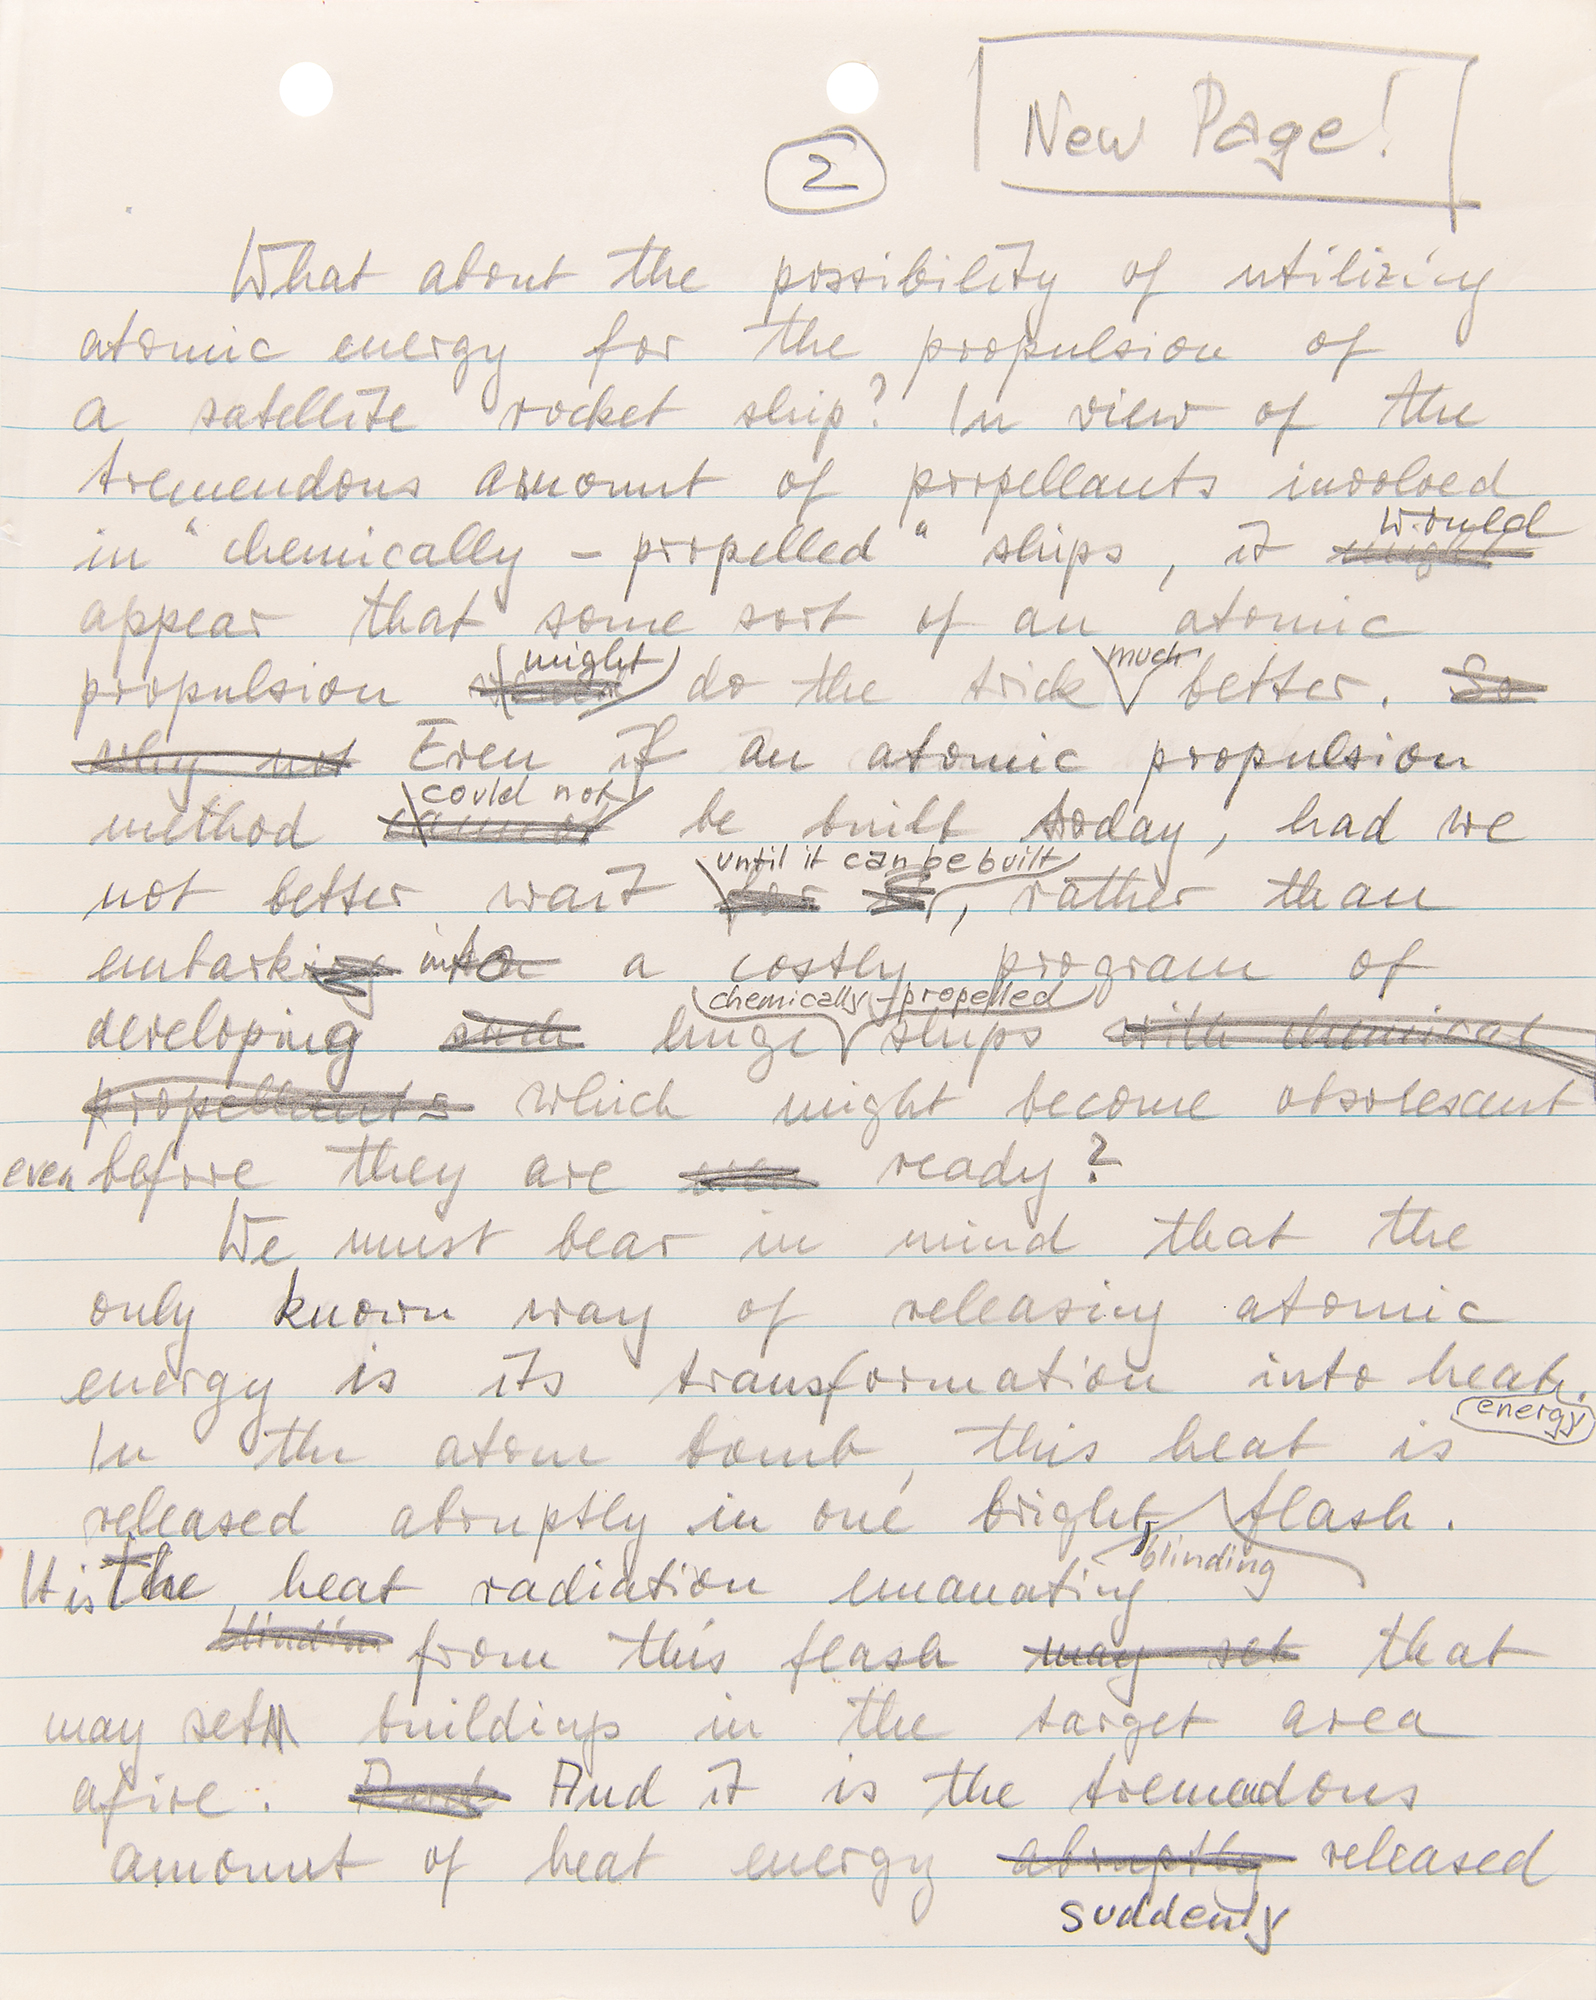 New Page!
2
What about the possibility of utilizing
atomic energy for the propulsion of
a satellite rocket ship? In view of the
tremendous amount of propellants involved
in "chemically-propelled" ships, it might would
appear that some sort of an atomic
propulsion might do the trick much better. So
why not Even if an atomic propulsion
method cannot could not be built today, had we
not better wait for it until it can be built, rather than
embarking into a costly program of
developing such huge chemically-propelled ships with chemical
propellants which might become obsolescent
even before they are ready?
We must bear in mind that the
only known way of releasing atomic
energy is its transformation into heat.
energy
In the atom bomb, this heat is
released abruptly in one bright, blinding flash.
It is The heat radiation emanating
blinding from this flash may set that
may set buildings in the target area
afire. And it is the tremendous
amount of heat energy abruptly released
suddenly